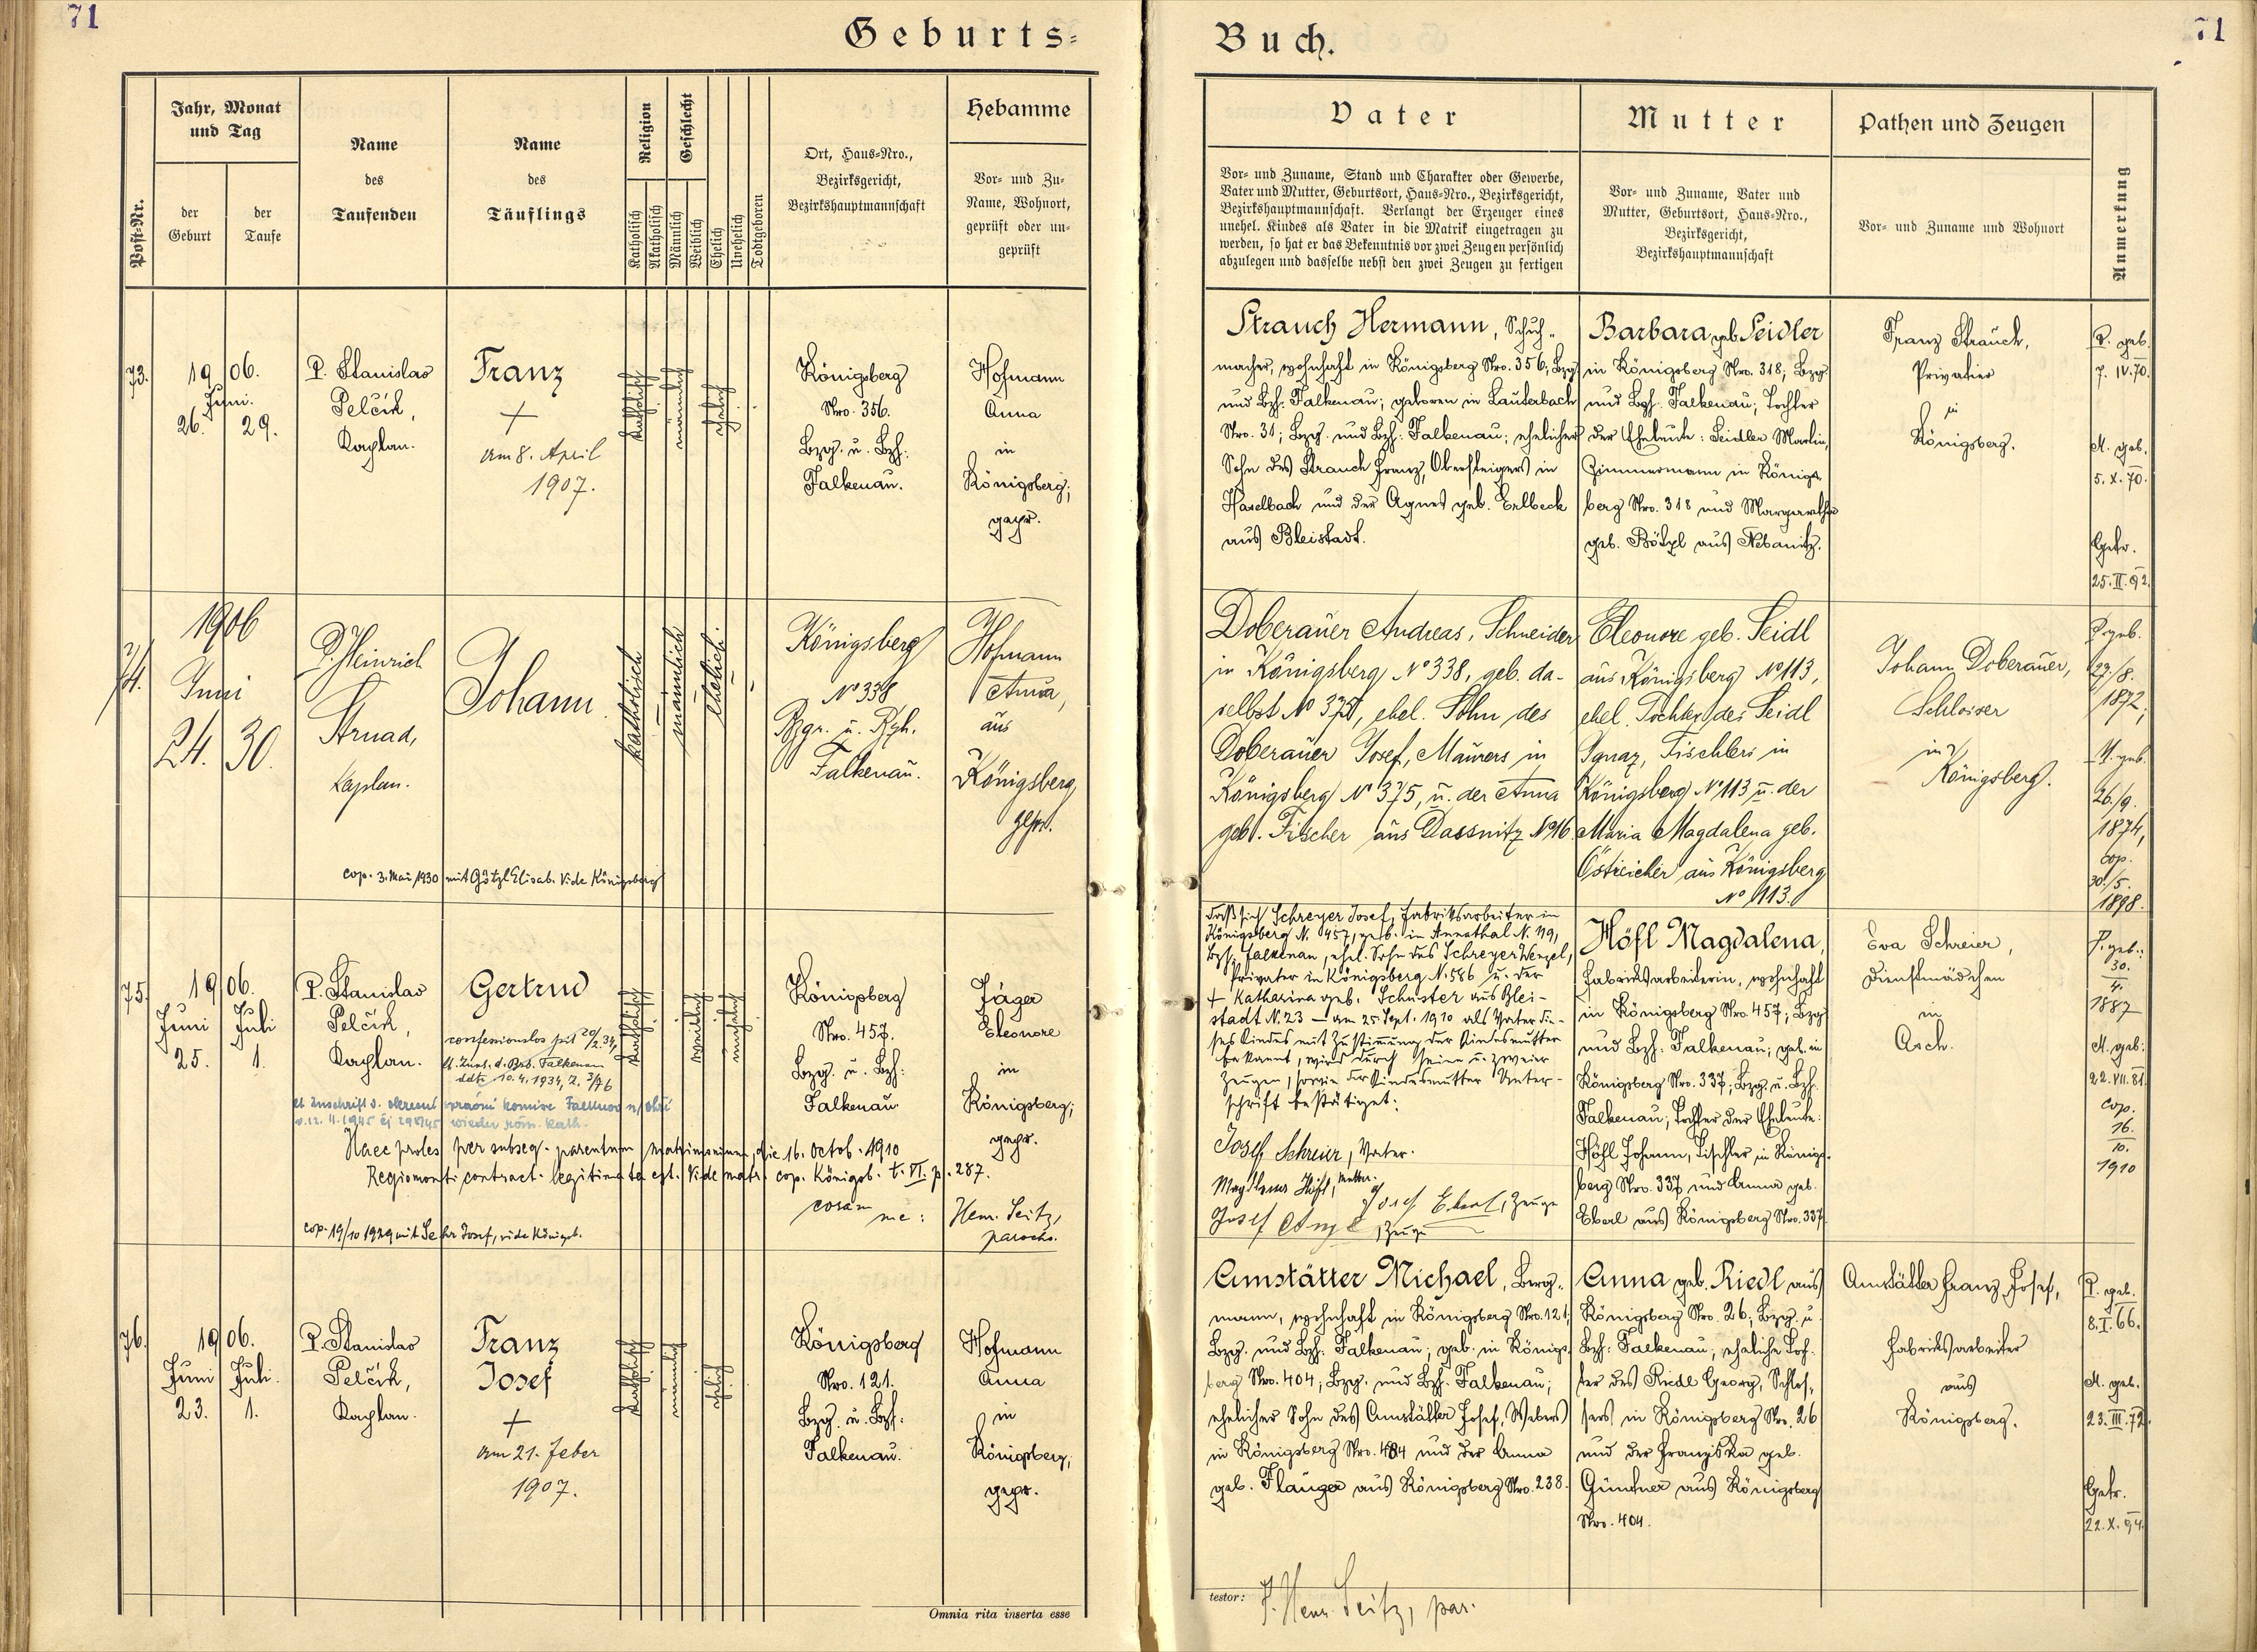 71
Geburts=
Post-Nr.
Jahr, Monat
und Tag
der
Geburt
der
Taufe
Name
des
Taufenden
Name
des
Täuflings
Religion
Katholisch
Akatholisch
Geschlecht
Männlich
Weiblich
Ehelich
Unehelich
Todtgeboren
Ort, Haus=Nro.,
Bezirksgericht,
Bezirkshauptmannschaft
Hebamme
Vor= und Zu=
Name, Wohnort,
geprüft oder un=
geprüft
73.
1906.
Juni.
26.
29.
P. Stanislav
Pelčík,
Kaplan.
Franz
+
am 8. April
1907.
katholisch
männlich
ehelich
Königsberg
Nro. 356.
Bzg. u. Bzh.
Falkenau.
Hofmann
Anna
in
Königsberg;
gepr.
74.
1906
Juni
24.
30.
P. Heinrich
Strnad,
Kaplan.
Johann
katholisch
männlich
ehelich
Königsberg
No 338
Bzgr. u. Bzh.
Falkenau.
Hofmann
Anna,
aus
Königsberg
gepr.
cop. 3. Mai 1930 mit Götzl Elisab. Vide Königsberg
75.
1906.
Juni
Juli
25.
1.
P. Stanislav
Pelčík,
Kaplan.
Gertrud
confessionslos seit 20/2.34,
lt. Zust. d. Bzb. Falkenau
ddto 10.4.1934, Z. 3/76
katholisch
weiblich
unehelich
Königsberg
Nro. 457.
Bzg. u. Bzh.
Falkenau
Jäger
Eleonore
in
Königsberg;
gepr.
lt Zuschrift d. okresní správní komise Falknov n/ohří
v. 12. 11. 1945 wieder röm. kath.
Haec proles per subseq. parentum matrimonium, die 16. Octob. 1910
Regiomonti contract. legitimata est. Vide matr. cop. Königsb. t. VI. p. 287.
coram me: Henr. Seitz,
parochs.
cop. 19/10 1929 mit Josef, vide Königsb.
76.
1906.
Juni
Juli.
23.
1.
P. Stanislav
Pelčík,
Kaplan.
Franz
Josef
+
am 21. Feber
1907.
katholisch
männlich
ehelich
Königsberg
Nro. 121.
Bzg. u. Bzh.
Falkenau.
Hofmann
Anna
in
Königsberg;
gepr.
Omnia rita inserta esse
71
Buch.
Vater
Vor= und Zuname, Stand und Charakter oder Gewerbe,
Vater und Mutter, Geburtsort, Haus=Nro., Bezirksgericht,
Bezirkshauptmannschaft. Verlangt der Erzeuger eines
unehel. Kindes als Vater in die Matrik eingetragen zu
werden, so hat er das Bekenntnis vor zwei Zeugen persönlich
abzulegen und dasselbe nebst den zwei Zeugen zu fertigen
Mutter
Vor= und Zuname, Vater und
Mutter, Geburtsort, Haus=Nro.,
Bezirksgericht,
Bezirkshauptmannschaft
Pathen und Zeugen
Vor= und Zuname und Wohnort
Anmerkung
Strauch Hermann, Schuh=
macher, wohnhaft in Königsberg Nro. 356, Bzg
und Bzh. Falkenau; geboren in Lauterbach
Nro. 31; Bzg. und Bzh. Falkenau; ehelicher
Sohn des Strauch Franz, Obersteigers in
Haselbach und der Agnes geb. Erlbeck
aus Bleistadt.
Barbara geb. Seidler
in Königsberg Nro. 318; Bzg
und Bzh. Falkenau; Tochter
der Eheleute: Seidler Martin,
Zimmermann in Königs=
berg Nro. 318 und Margaretha
geb. Pötzl aus Nebanitz.
Franz Strauch,
Privatier
in
Königsberg.
P. geb.
7. IV. 70.
M. geb.
5. X. 70.
Getr.
25. II. 92.
Doberauer Andreas, Schneider
in Königsberg No 338, geb. da-
selbst No 375, ehel. Sohn des
Doberauer Josef, Maurers in
Königsberg No 375, u. der Anna
geb. Fischer aus Dassnitz No 16.
Eleonore geb. Seidl
aus Königsberg No 113,
ehel. Tochter des Seidl
Ignaz, Tischlers in
Königsberg No 113 u. der
Maria Magdalena geb.
Östreicher aus Königsberg
No 113.
Johann Doberauer,
Schlosser
in
Königsberg.
P. geb.
27./8.
1872,
M. geb.
26./9.
1874,
cop.
30./5.
1898.
Daß sich Schreyer Josef, Fabriksarbeiter in
Königsberg N. 457, geb. in Annathal N. 119,
Bzh. Falkenau, ehel. Sohn des Schreyer Wenzel,
Privater in Königsberg N. 586 u. der
+ Katharina geb. Schuster aus Blei-
stadt N. 23 – am 25. Sept. 1910 als Vater die-
ses Kindes mit Zustimmung der Kindesmutter
bekannt, wird durch seine u. zweier
Zeugen, sowie der Kindesmutter Unter-
schrift bestätiget:
Josef Schreier, Vater.
Magdalena Höfl, Mutter.
Josef Eberl, Zeuge
Josef, Zeuge
Höfl Magdalena,
Fabriksarbeiterin, wohnhaft
in Königsberg Nro. 457; Bzg
und Bzh. Falkenau; geb. in
Königsberg Nro. 337; Bzg. u. Bzh.
Falkenau; Tochter der Eheleute:
Höfl Johann, Tischler in Königs=
berg Nro. 337 und Anna geb.
Eberl aus Königsberg Nro. 337.
Eva Schreier,
Dienstmädchen
in
Asch.
P. geb.:
30.
4.
1887
M. geb:
22. VII. 81.
cop.
16.
10.
1910
Amstätter Michael, Berg=
mann, wohnhaft in Königsberg Nro. 121;
Bzg. und Bzh. Falkenau; geb. in Königs=
berg Nro. 404; Bzg. und Bzh. Falkenau;
ehelicher Sohn des Amstätter Josef, Webers
in Königsberg Nro. 404 und der Anna
geb. Flauger aus Königsberg Nro. 238.
Anna geb. Riedl aus
Königsberg Nro. 26; Bzg. u
Bzh. Falkenau; eheliche Toch=
ter des Riedl Georg, Schlos=
sers in Königsberg Nro. 26
und der Franziska geb.
Günthner aus Königsberg
Nro. 404.
Amstätter Franz Josef,
Fabriksarbeiter
aus
Königsberg.
P. geb.
8. I. 66.
M. geb.
23. III. 72.
Getr.
22. X. 94.
testor: P. Henr. Seitz, par.